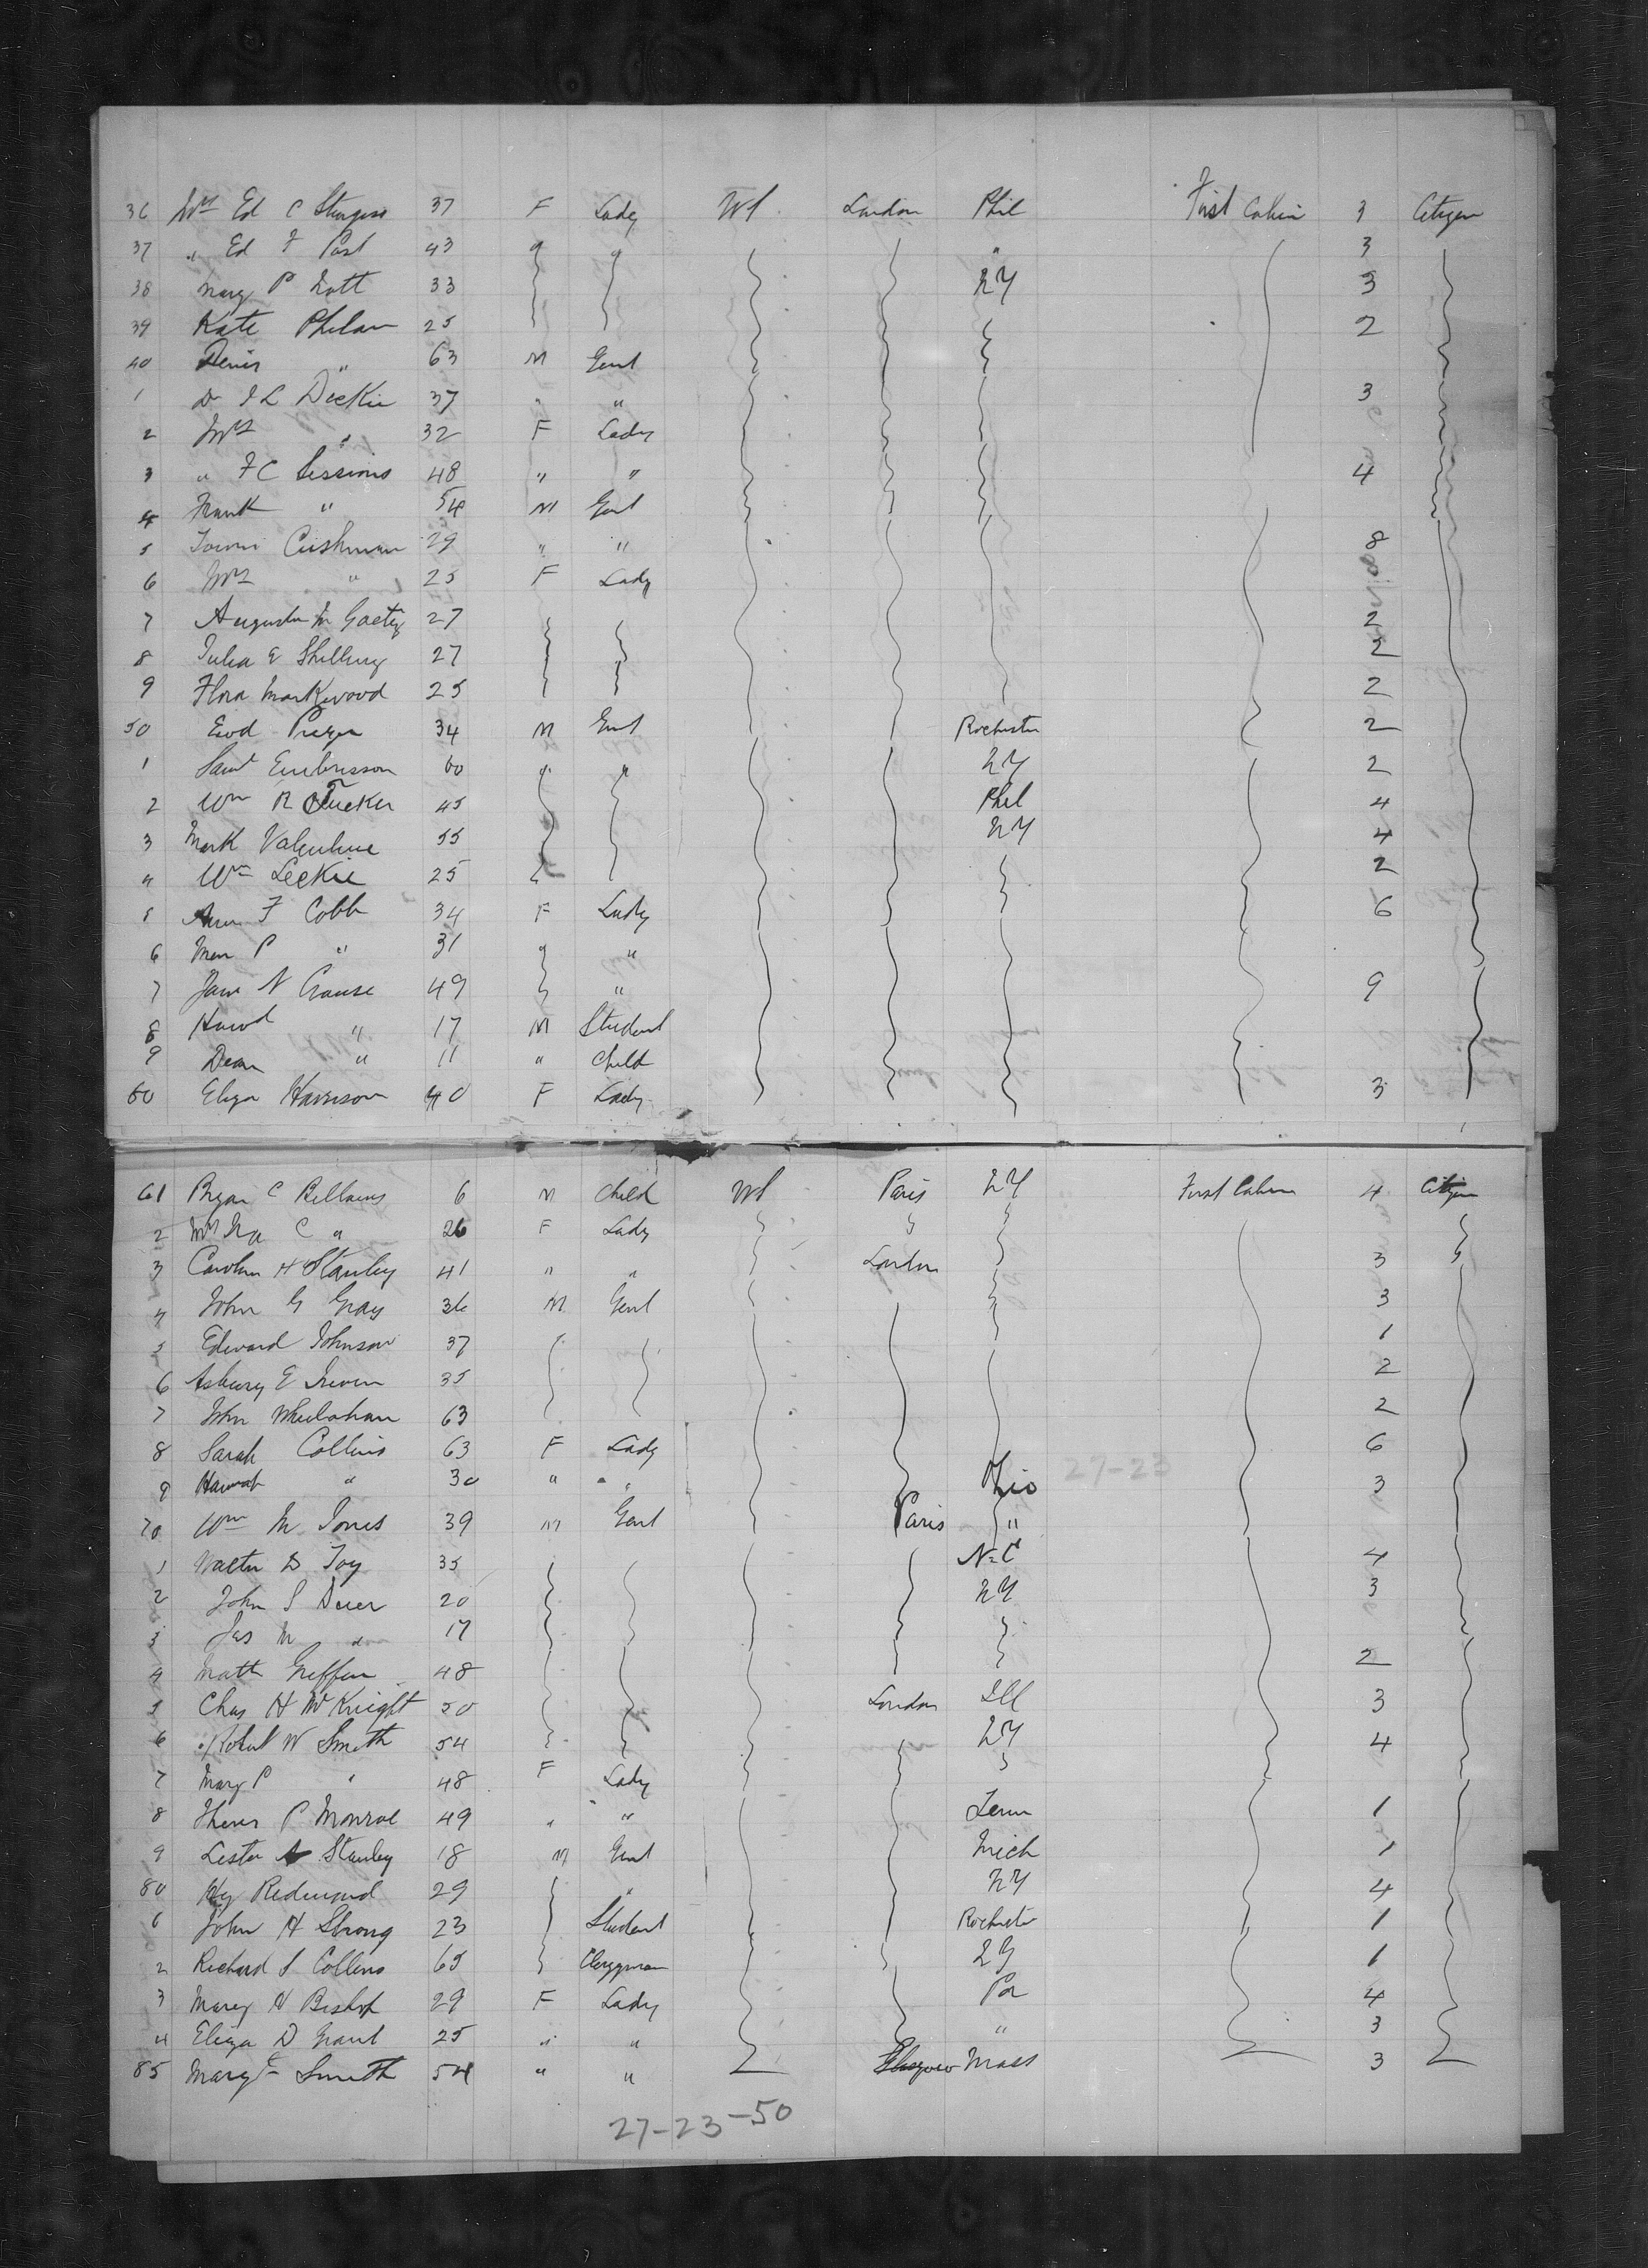 36 Mrs Ed C Sturgess 37 F Lady US London Phil First Cabin 3 Citizen
37 " Ed F Post 43 " " " 3
38 Mary P Nott 33 NY 3
39 Kate Phelan 25 2
40 Denis " 63 M Gent
1 Dr J L Dickie 37 " " 3
2 Mrs " 32 F Lady
3 " F C Sessions 48 " " 4
4 Frank " 54 M Gent
5 Cushman 29 " " 8
6 Mrs " 25 F Lady
7 Augusta M 27 2
8 Julia E Shelling 27 2
9 Flora Markwood 25 2
50 34 M Gent Rochester 2
1 Saml 60 " " NY 2
2 Wm R Tucker 45 Phil 4
3 Mark Valentine 55 NY 4
4 Wm Leckie 25 2
5 F Cobb 34 F Lady 6
6 P " 31 " "
7 Jane N Crouse 49 " 9
8 " 17 M Student
9 Dean " 11 " Child
60 Eliza Harrison 40 F Lady 3
61 Bryan C Bellows 6 M Child US Paris NY First Cabin 4 Citizen
2 Mrs Ira C " 26 F Lady
3 Carolyn H Stanley 41 " " London 3
4 John G Gray 36 M Gent 3
5 Edward Johnson 37 1
6 Asbury E 35 2
7 John Wheelahan 63 2
8 Sarah Collins 63 F Lady 6
9 Hannah " 30 " " Ohio 27-23 3
70 Wm M Jones 39 M Gent Paris "
1 Walter D Toy 35 N.C 4
2 John S 20 NY 3
3 Jas M " 17
4 Matth Griffin 48 2
5 Chas H McKnight 50 London Ill 3
6 Robert W Smith 54 NY 4
7 Mary P " 48 F Lady
8 P Monroe 49 " " Tenn 1
9 Lester A Stanley 18 M Gent Mich 1
80 Hy Redmond 29 " NY 4
1 John H Strong 23 Student Rochester 1
2 Richard S Collins 65 Clergyman NY 1
3 Mary H Bishop 29 F Lady Pa 4
4 Eliza D Grant 25 " " " 3
85 Margt Smith 54 " " Glasgow Mass 3
27-23-50